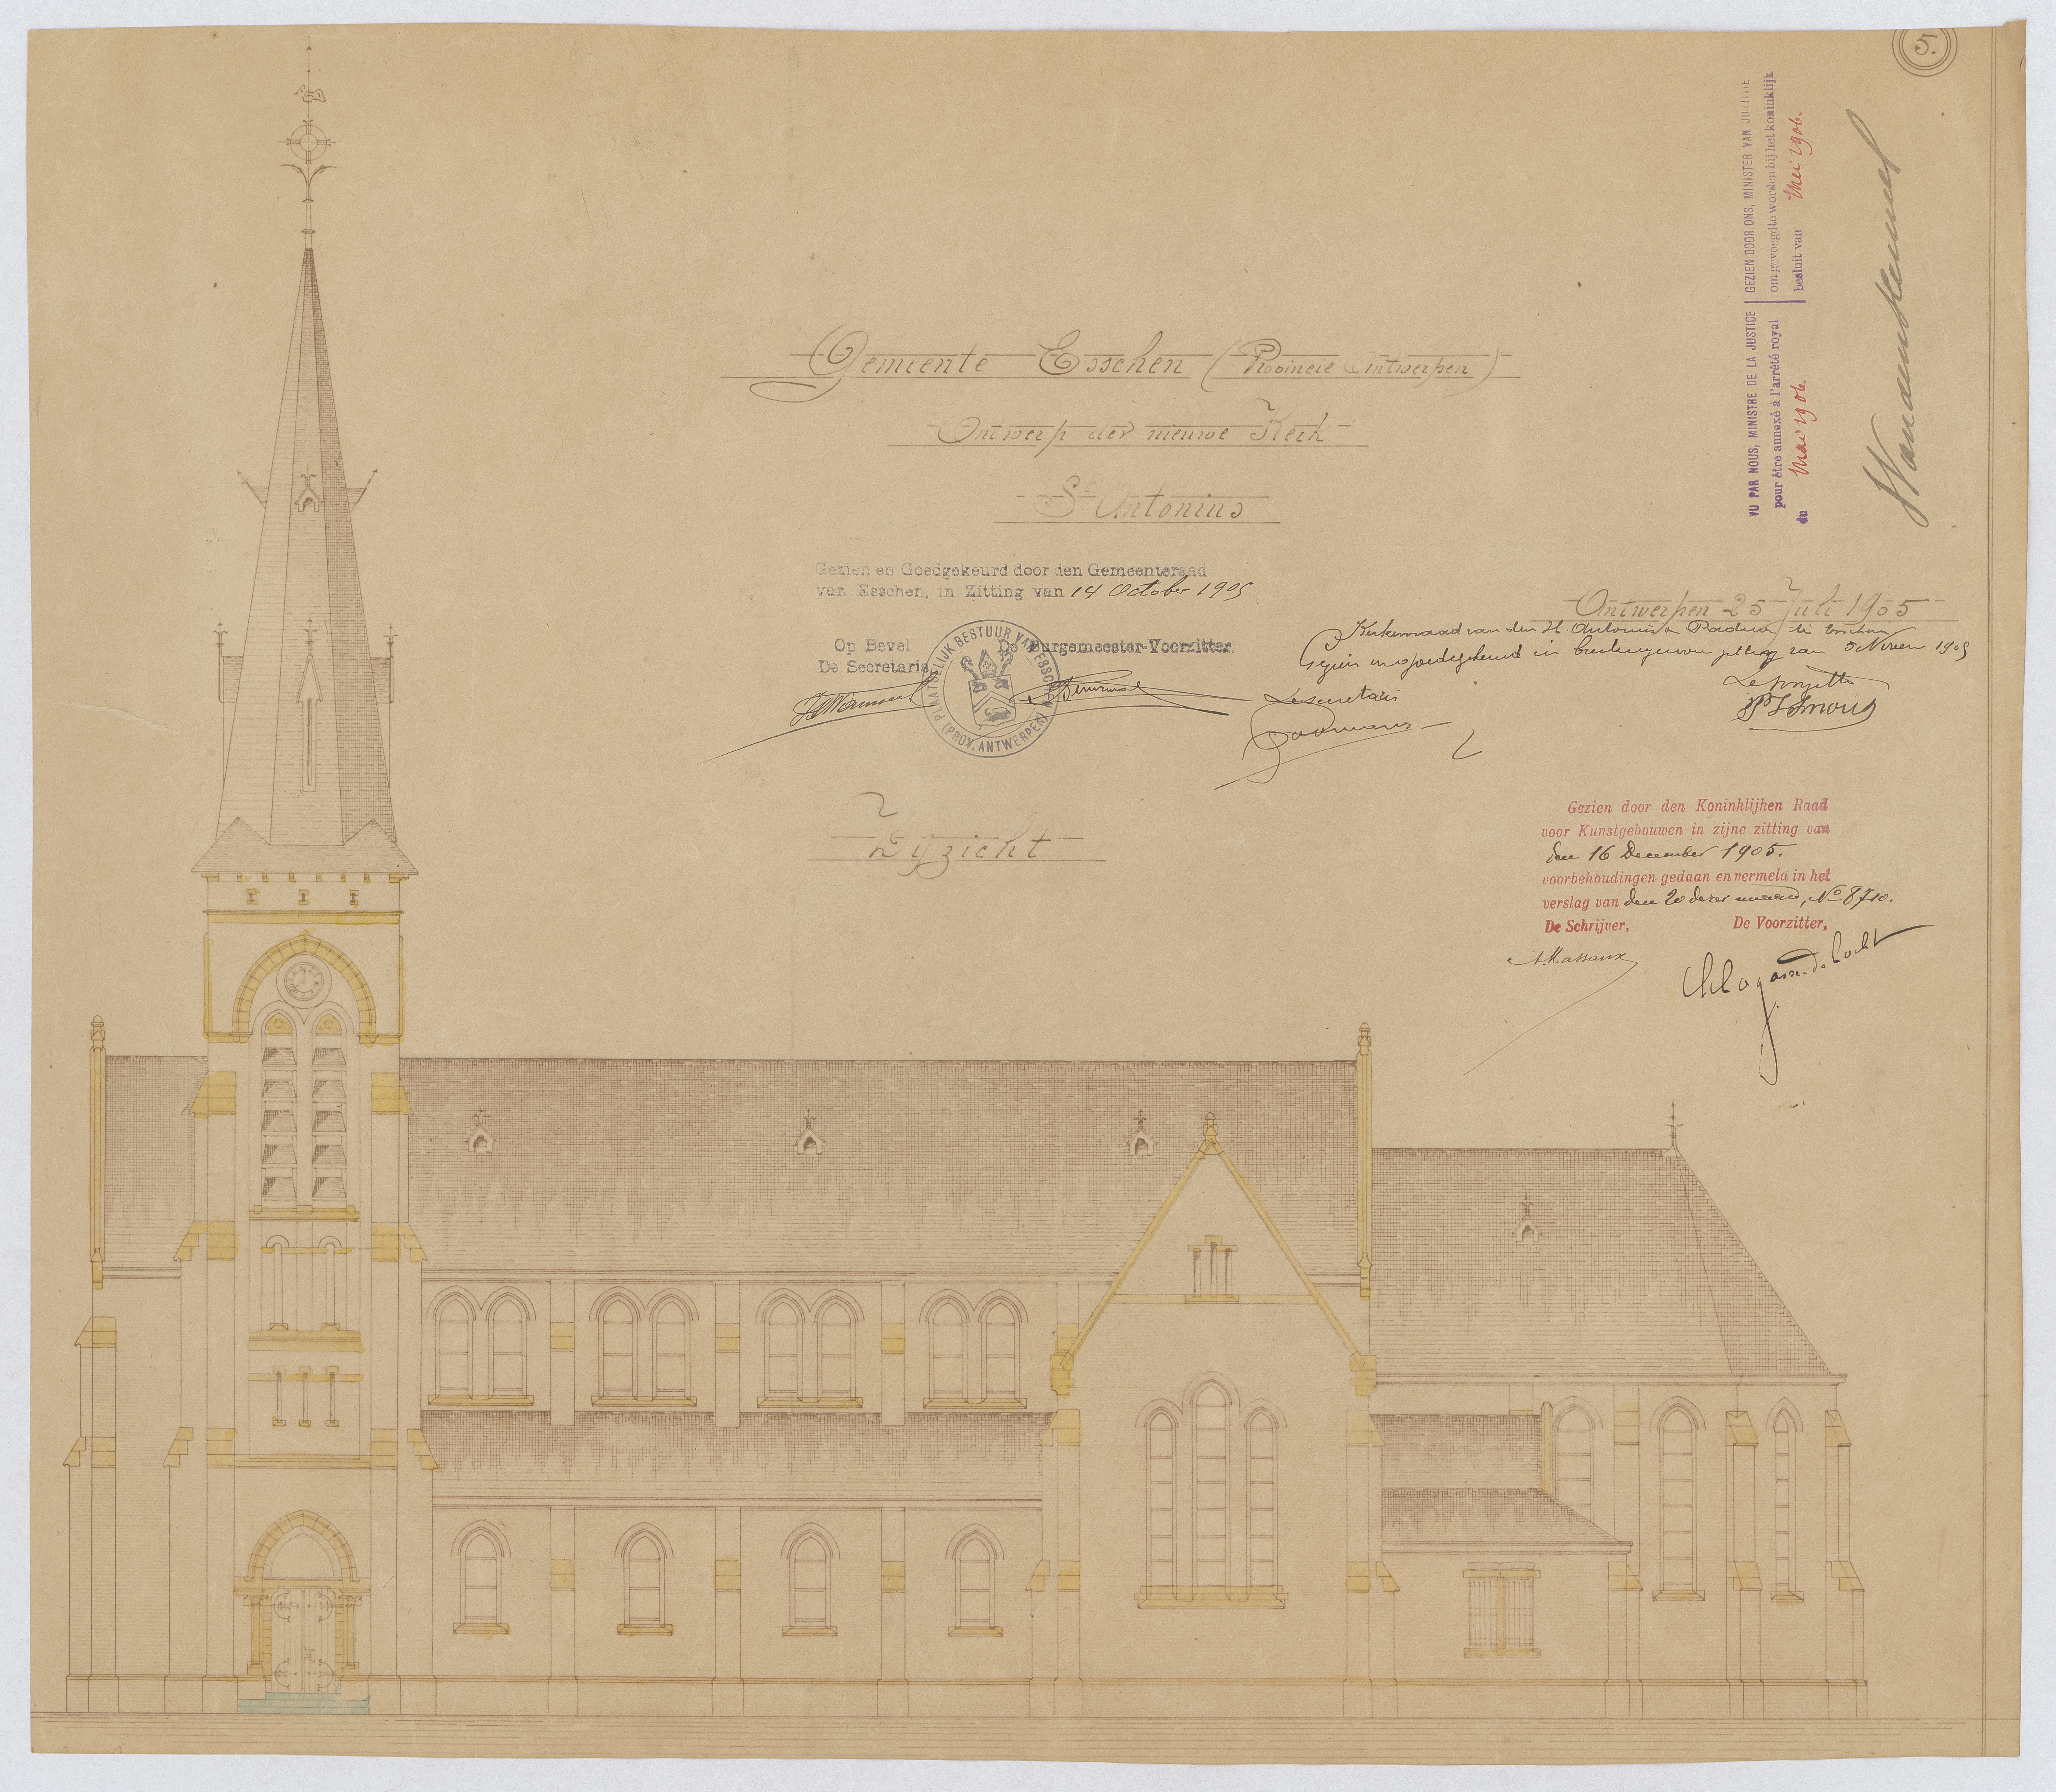 5.
VU PAR NOUS, MINISTRE DE LA JUSTICE
pour être annexé à l'arrêté royal
du Mai 1906.
GEZIEN DOOR ONS, MINISTER VAN JUSTITIE
om gevoegd te worden bij het koninklijk
besluit van Mei 1906.
Gemeente Esschen (Provincie Antwerpen)
Ontwerp der nieuwe Kerk
St Antonius
Gezien en Goedgekeurd door den Gemeenteraad
van Esschen, in Zitting van 14 October 1905
Op Bevel
De Secretaris
De Burgemeester-Voorzitter.
PLAATSELIJK BESTUUR VAN ESSCHEN
(PROV. ANTWERPEN)
Antwerpen 25 Juli 1905
Kerkenraad van den H. Antonius Padua te Esschen
Gezien en goedgekeurd in zitting van 5 1905
De secretaris
Zijzicht
Gezien door den Koninklijken Raad
voor Kunstgebouwen in zijne zitting van
den 16 December 1905.
voorbehoudingen gedaan en vermeld in het
verslag van den 20 dezer maand, No 8710.
De Schrijver,
De Voorzitter,
A. Massaux